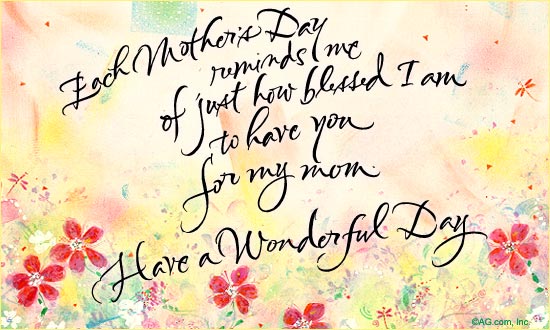 Each Mother's Day
reminds me
of just how blessed I am
to have you
for my mom.
Have a Wonderful Day
©AG.com, Inc.